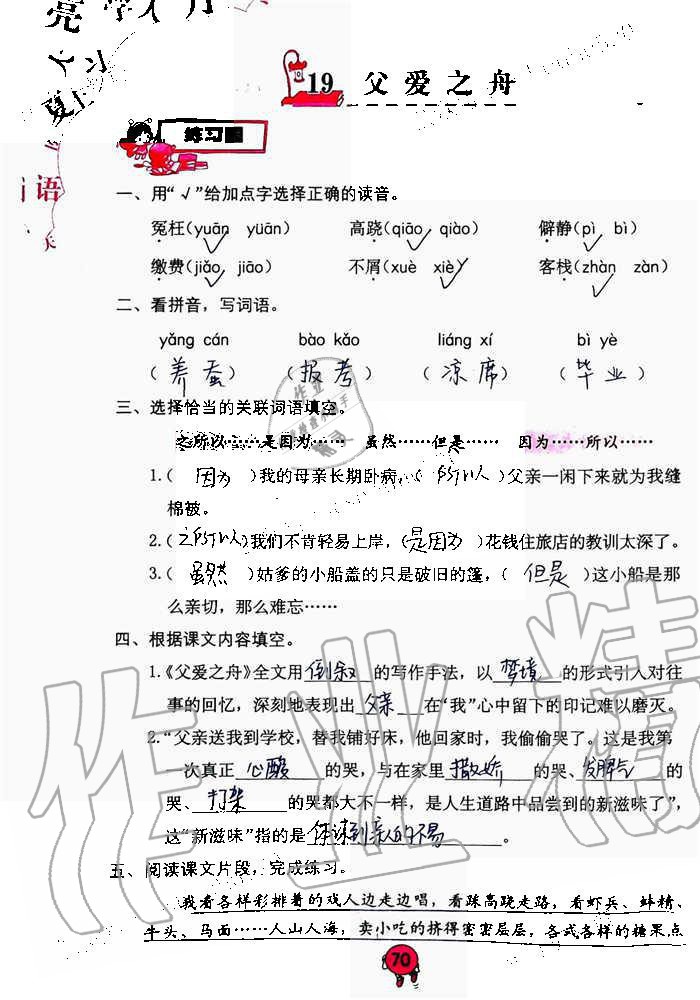 19 父爱之舟
练习
一、用“√”给加点字选择正确的读音。
冤枉(yuān yüān) 高跷(qiāo qiào) 僻静(pì bì)
缴费(jiǎo jiāo) 不屑(xuè xiè) 客栈(zhàn zàn)
二、看拼音，写词语。
yǎng cán bào kǎo liáng xí bì yè
(养蚕) (报考) (凉席) (毕业)
三、选择恰当的关联词语填空。
之所以……是因为…… 虽然……但是…… 因为……所以……
1.( 因为 )我的母亲长期卧病,( 所以 )父亲一闲下来就为我缝
棉被。
2.(之所以)我们不肯轻易上岸,(是因为)花钱住旅店的教训太深了。
3.( 虽然 )姑爹的小船盖的只是破旧的篷,( 但是 )这小船是那
么亲切,那么难忘……
四、根据课文内容填空。
1.《父爱之舟》全文用 倒叙 的写作手法,以 梦境 的形式引入对往
事的回忆,深刻地表现出 父亲 在“我”心中留下的印记难以磨灭。
2.“父亲送我到学校,替我铺好床,他回家时,我偷偷哭了。这是我第
一次真正 心酸 的哭,与在家里 撒娇 的哭、发脾气 的
哭、 打架 的哭都大不一样,是人生道路中品尝到的新滋味了”,
这“新滋味”指的是 体味到父亲的不易
五、阅读课文片段,完成练习。
我看各样彩排着的戏人边走边唱,看踩高跷走路,看虾兵、蚌精、
牛头、马面……人山人海,卖小吃的挤得密密层层,各式各样的糖果点
70